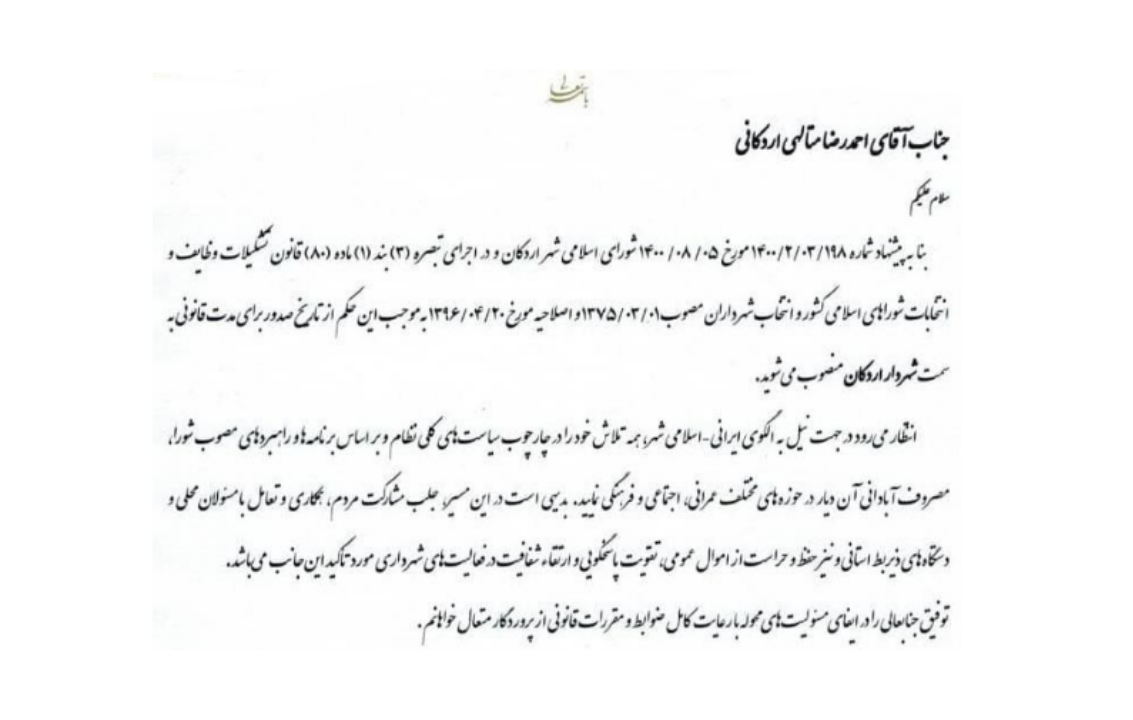 باسمه تعالی
جناب آقای احمدرضا متألهی اردکانی
سلام علیکم
بنا به پیشنهاد شماره ۱۴۰۰/۲/۰۳/۱۹۸ مورخ ۱۴۰۰/۰۸/۰۵ شورای اسلامی شهر اردکان و در اجرای تبصره (۳) بند (۱) ماده (۸۰) قانون تشکیلات وظایف و
انتخابات شوراهای اسلامی کشور و انتخاب شهرداران مصوب ۱۳۷۵/۰۳/۰۱ و اصلاحیه مورخ ۱۳۹۶/۰۴/۲۰ به موجب این حکم از تاریخ صدور برای مدت قانونی به
سمت شهردار اردکان منصوب می شوید.
انتظار می رود در جهت نیل به الگوی ایرانی-اسلامی شهر، همه تلاش خود را در چارچوب سیاست های کلی نظام و بر اساس برنامه ها و راهبردهای مصوب شورا،
مصروف آبادانی آن دیار در حوزه های مختلف عمرانی، اجتماعی و فرهنگی نمایید. بدیهی است در این مسیر، جلب مشارکت مردم، همکاری و تعامل با مسئولان محلی و
دستگاه های ذیربط استانی و نیز حفظ و حراست از اموال عمومی، تقویت پاسخگویی و ارتقاء شفافیت در فعالیت های شهرداری مورد تأکید این جانب می باشد.
توفیق جنابعالی را در ایفای مسئولیت های محوله با رعایت کامل ضوابط و مقررات قانونی از پروردگار متعال خواهانم.